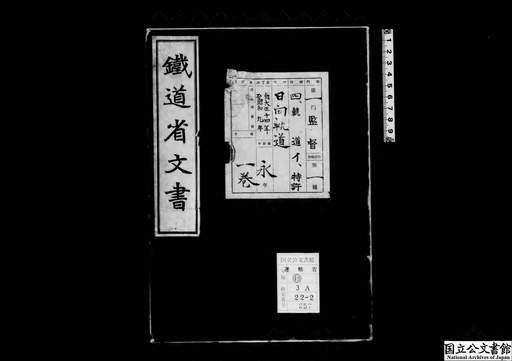 鐵道省文書
第一門
監督
第一種
四、軌道
イ、特許
日向軌道
自大正十四年
至昭和九年
永年
一巻
国立公文書館
運輸省
3A
22-2
257
1 2 3 4 5 6 7 8 9
国立公文書館
National Archives of Japan